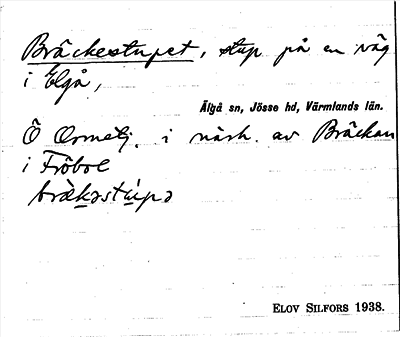 Bräckestupet, stup på en väg
i Elgå,
Älgå sn, Jösse hd, Värmlands län.
Ö Ormelj. i närh. av Bräckan
i Fröbol
brä̀kəstúpə
ELOV SILFORS 1938.